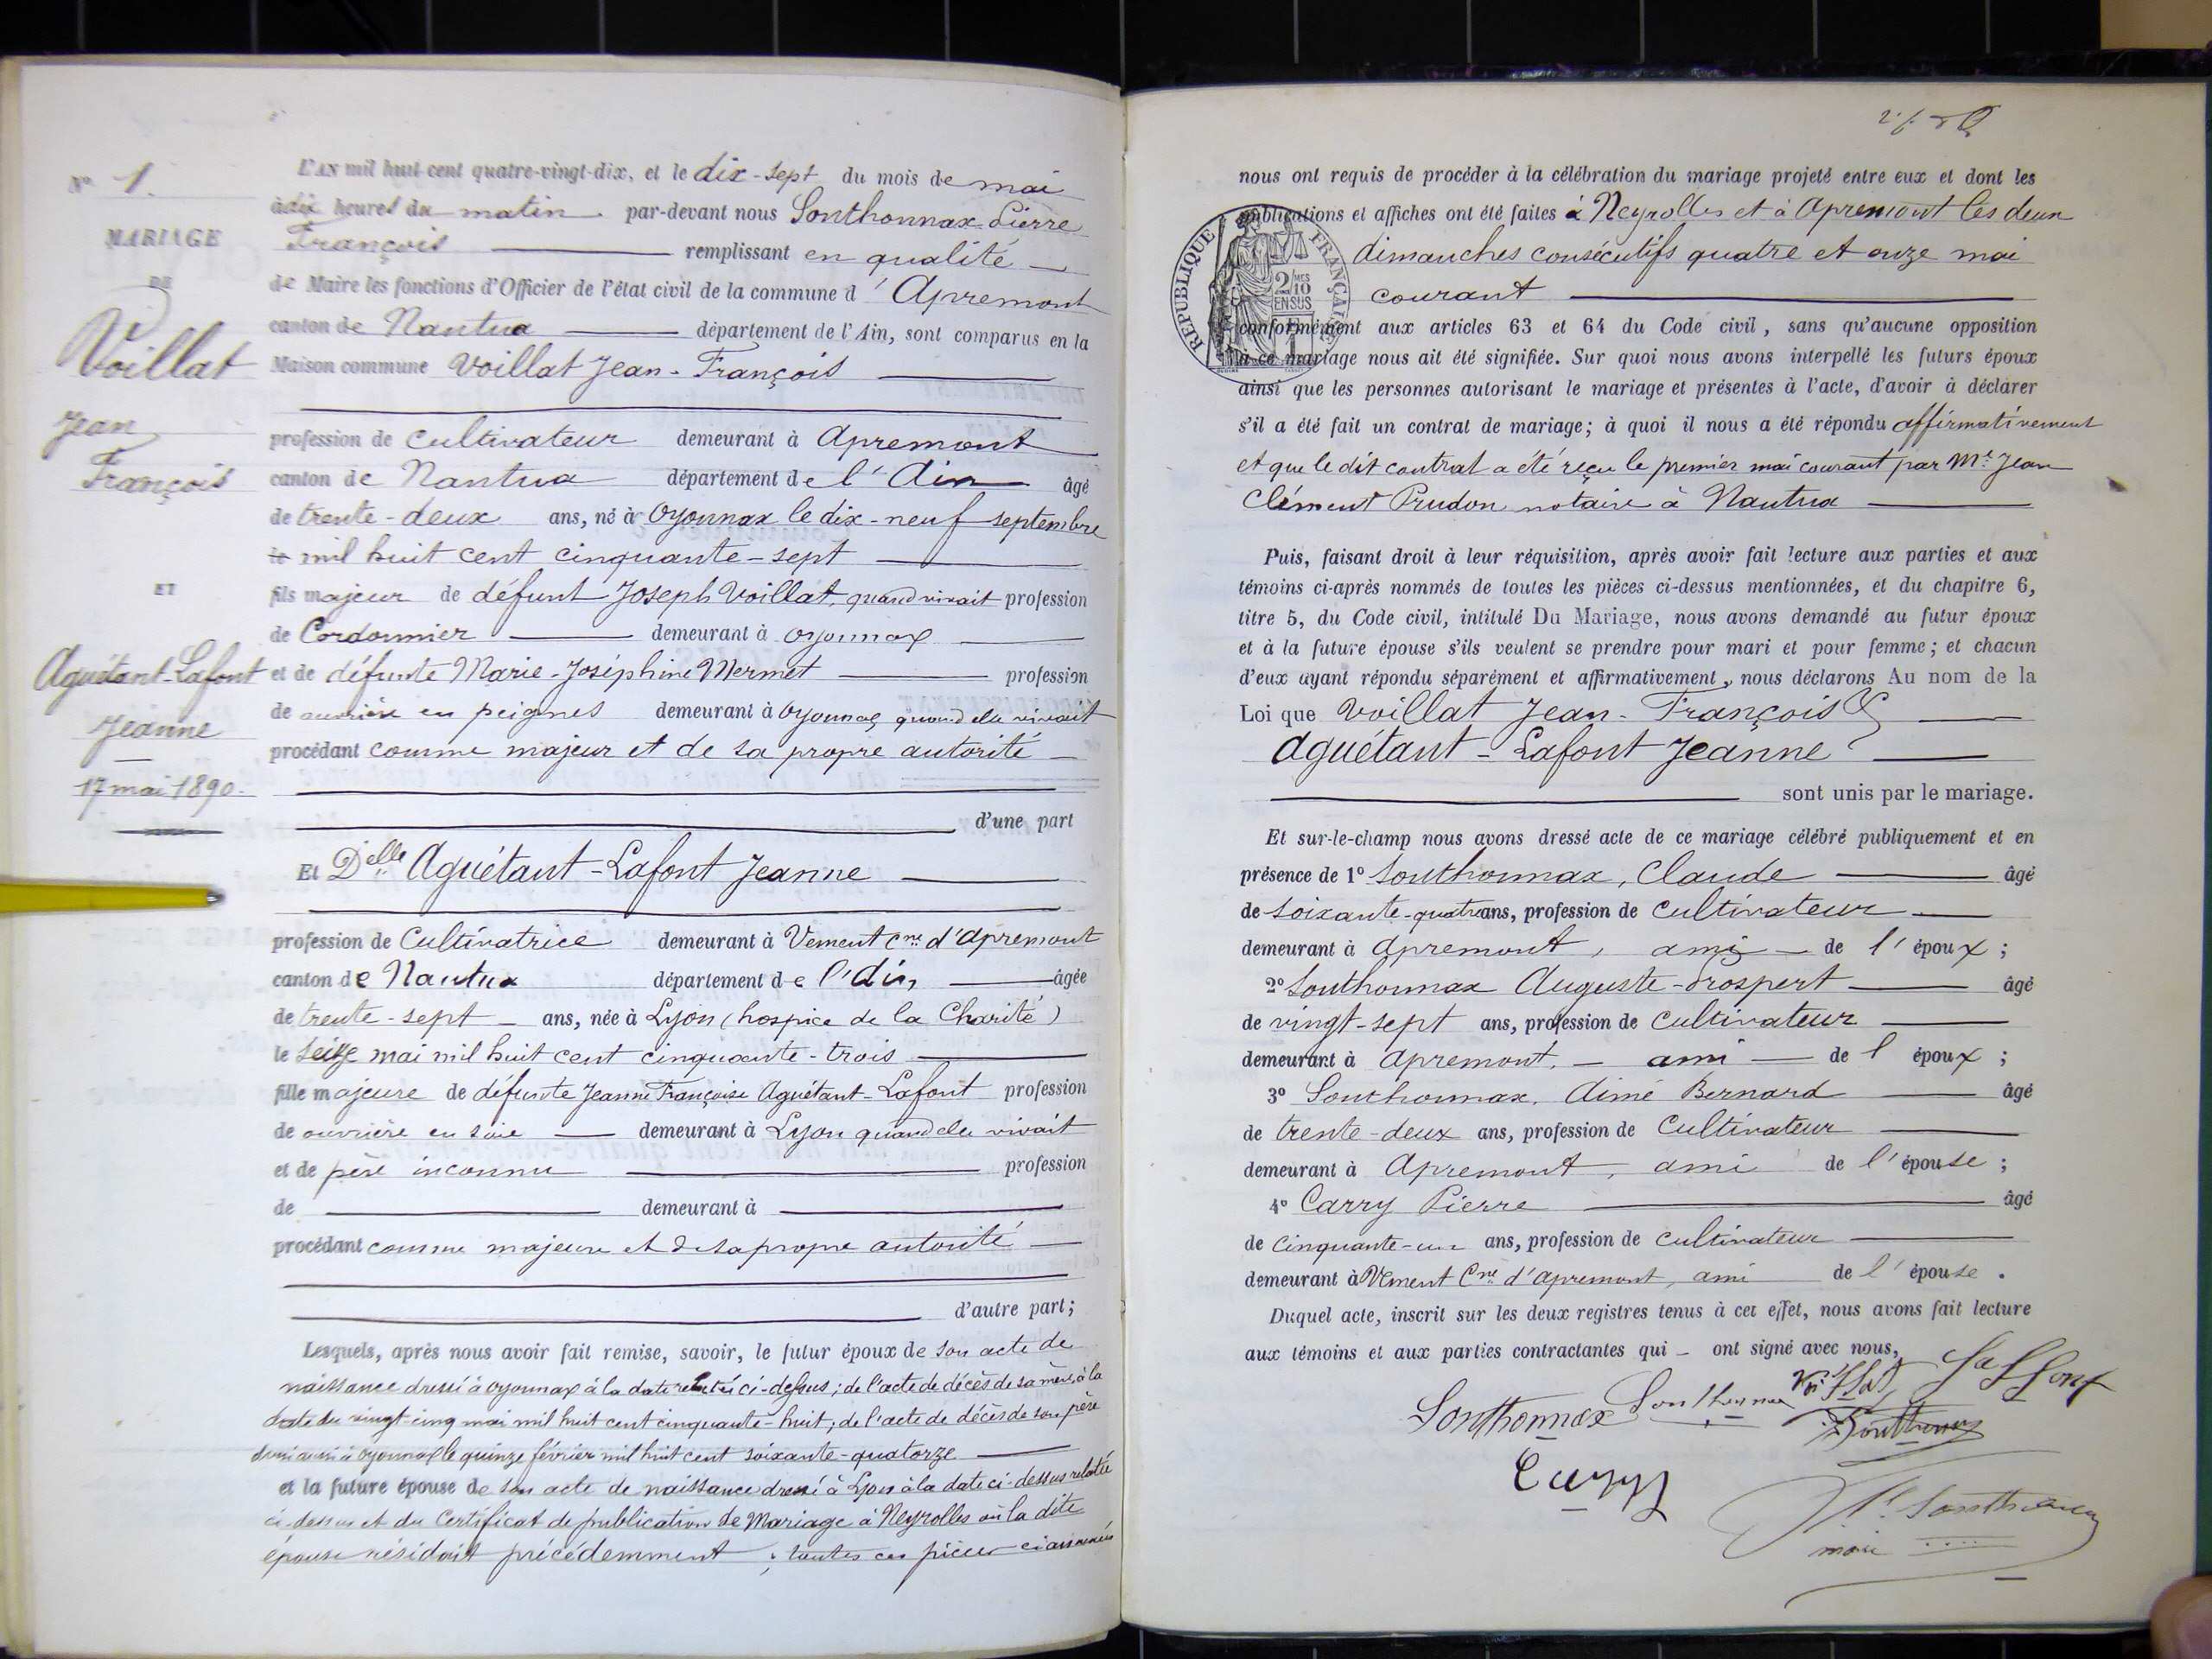 N° 1.
MARIAGE
DE
Voillat
Jean
François
ET
Aguétant-Lafont
Jeanne
17 mai 1890.
L'AN mil huit cent quatre-vingt-dix, et le dix-sept du mois de mai
à dix heures du matin par-devant nous Sonthonnax Pierre
François remplissant en qualité
de Maire les fonctions d'Officier de l'état civil de la commune d'Apremont
canton de Nantua département de l'Ain, sont comparus en la
Maison commune Voillat Jean-François
profession de Cultivateur demeurant à Apremont
canton de Nantua département de l'Ain âgé
de trente-deux ans, né à Oyonnax le dix-neuf septembre
le mil huit cent cinquante-sept
fils majeur de défunt Joseph Voillat, quand vivait profession
de Cordonnier demeurant à Oyonnax
et de défunte Marie-Joséphine Mermet profession
de ouvrière en peignes demeurant à Oyonnax quand elle vivait
procédant comme majeur et de sa propre autorité
d'une part
Et Delle Aguétant-Lafont Jeanne
profession de Cultivatrice demeurant à Vement Cne d'Apremont
canton de Nantua département de l'Ain âgée
de trente-sept ans, née à Lyon (hospice de la Charité)
le seize mai mil huit cent cinquante-trois
fille majeure de défunte Jeanne Françoise Aguétant-Lafont profession
de ouvrière en soie demeurant à Lyon quand elle vivait
et de père inconnu profession
de demeurant à
procédant comme majeure et de sa propre autorité
d'autre part;
Lesquels, après nous avoir fait remise, savoir, le futur époux de son acte de
naissance dressé à Oyonnax à la date relatée ci-dessus; de l'acte de décès de sa mère, à la
date du vingt-cinq mai mil huit cent cinquante-huit; de l'acte de décès de son père
aussi à Oyonnax le quinze février mil huit cent soixante-quatorze
et la future épouse de son acte de naissance dressé à Lyon à la date ci-dessus relatée
ci-dessus et du Certificat de publication de Mariage à Neyrolles où la dite
épouse résidait précédemment; toutes ces pièces ci annexées
nous ont requis de procéder à la célébration du mariage projeté entre eux et dont les
publications et affiches ont été faites à Neyrolles et à Apremont les deux
dimanches consécutifs quatre et onze mai
courant
RÉPUBLIQUE FRANÇAISE
2/10 EN SUS
conformément aux articles 63 et 64 du Code civil, sans qu'aucune opposition
à ce mariage nous ait été signifiée. Sur quoi nous avons interpellé les futurs époux
ainsi que les personnes autorisant le mariage et présentes à l'acte, d'avoir à déclarer
s'il a été fait un contrat de mariage; à quoi il nous a été répondu affirmativement
et que le dit contrat a été reçu le premier mai courant par Me Jean
Clément Prudon notaire à Nantua
Puis, faisant droit à leur réquisition, après avoir fait lecture aux parties et aux
témoins ci-après nommés de toutes les pièces ci-dessus mentionnées, et du chapitre 6,
titre 5, du Code civil, intitulé Du Mariage, nous avons demandé au futur époux
et à la future épouse s'ils veulent se prendre pour mari et pour femme; et chacun
d'eux ayant répondu séparément et affirmativement, nous déclarons Au nom de la
Loi que Voillat Jean-François &
Aguétant-Lafont Jeanne
sont unis par le mariage.
Et sur-le-champ nous avons dressé acte de ce mariage célébré publiquement et en
présence de 1° Sonthonnax, Claude âgé
de soixante-quatre ans, profession de Cultivateur
demeurant à Apremont, ami de l'époux;
2° Sonthonnax Auguste-Prospert âgé
de vingt-sept ans, profession de Cultivateur
demeurant à Apremont, ami de l époux;
3° Sonthonnax, Aimé Bernard âgé
de trente-deux ans, profession de Cultivateur
demeurant à Apremont, ami de l'épouse;
4° Carry Pierre âgé
de Cinquante-un ans, profession de Cultivateur
demeurant à Vement Cne d'Apremont, ami de l'épouse.
Duquel acte, inscrit sur les deux registres tenus à cet effet, nous avons fait lecture
aux témoins et aux parties contractantes qui ont signé avec nous,
Sonthonnax Sonthonnax Voillat Laffont
Sonthonnax
Carry
Sonthonnax
maire